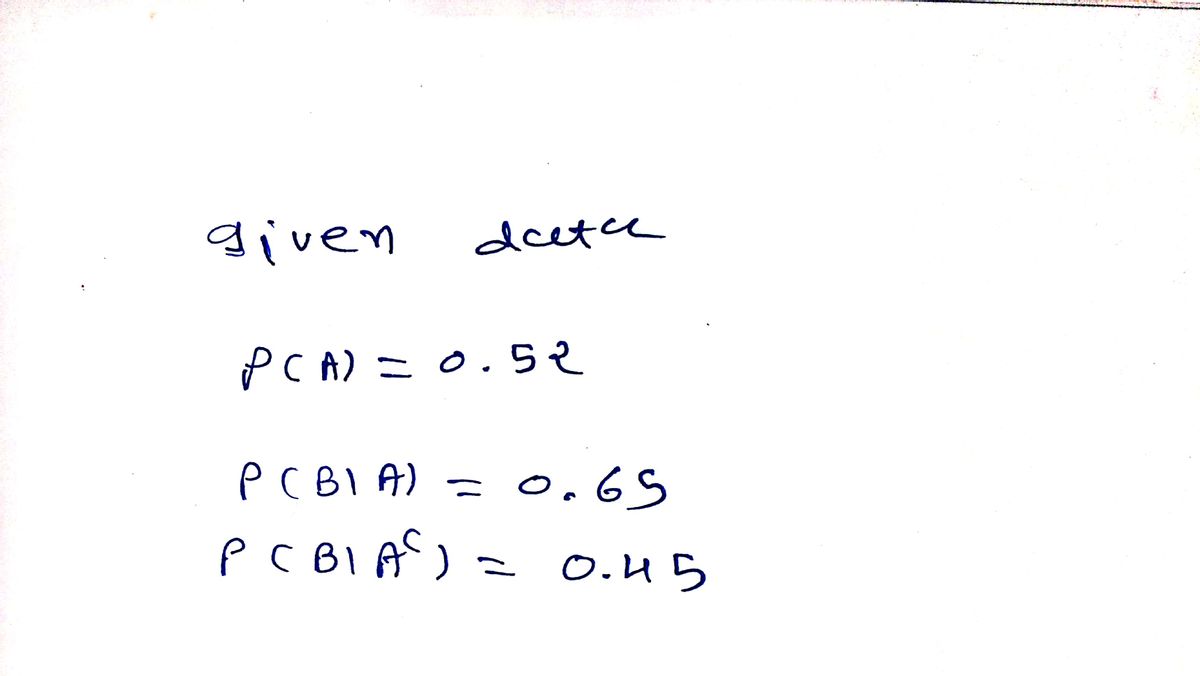 given data
P(A) = 0.52
P(B|A) = 0.65
P(B|Aᶜ) = 0.45